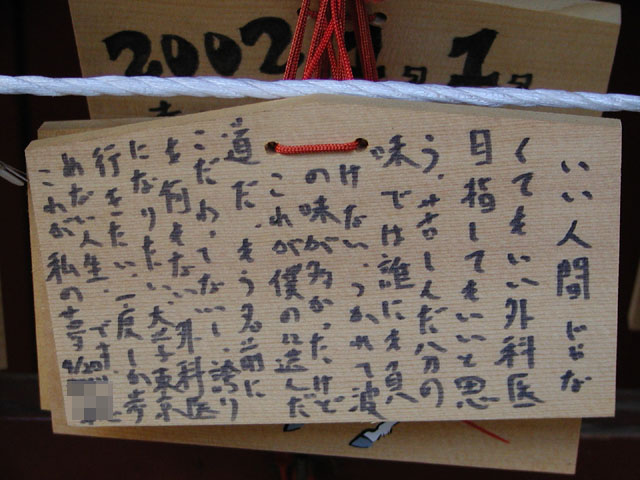 2002.1月1日
いい人間じゃな
くてもいい外科医
目指してもいいと思
う。苦しんだ分の
味では誰にも負
けない、つかれて波
の味が多かったけど
これが僕のに選んだ
道だ。もう名前に
こだわってないし、誇り
も何もない外科医
になりたい、大学東京
行きたい、一度しか歩
めない人生、です、
これが私の 9/20